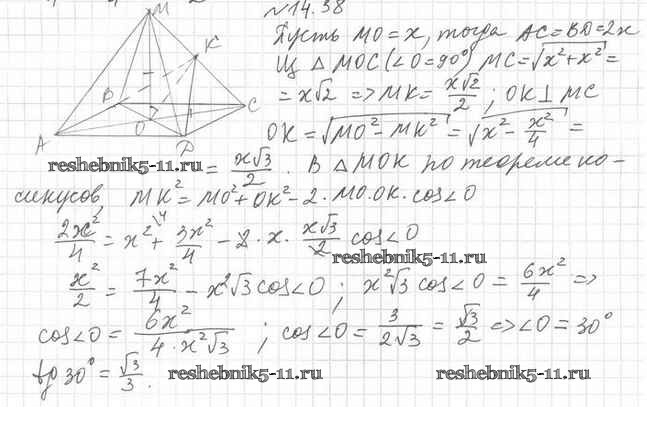 №14.38
M
Пусть MO = x, тогда AC = BD = 2x
K
Из △ MOC (∠O = 90°) MC = √x² + x² =
B
C
= x√2 => MK = x√2/2 ; OK ⊥ MC
A
O
D
OK = √MO² - MK² = √x² - x²/4 =
reshebnik5-11.ru
= x√3/2 . В △ MOK по теореме ко-
синусов, MK² = MO² + OK² - 2 · MO · OK · cos∠O
2x²/4 = x² + 3x²/4 - 2 · x · x√3/2 cos∠O
x²/2 = 7x²/4 - x²√3 cos∠O ; x²√3 cos∠O = 6x²/4 =>
cos∠O = 6x²/4 · x²√3 ; cos∠O = 3/2√3 = √3/2 => ∠O = 30°
tg 30° = √3/3 .
reshebnik5-11.ru
reshebnik5-11.ru